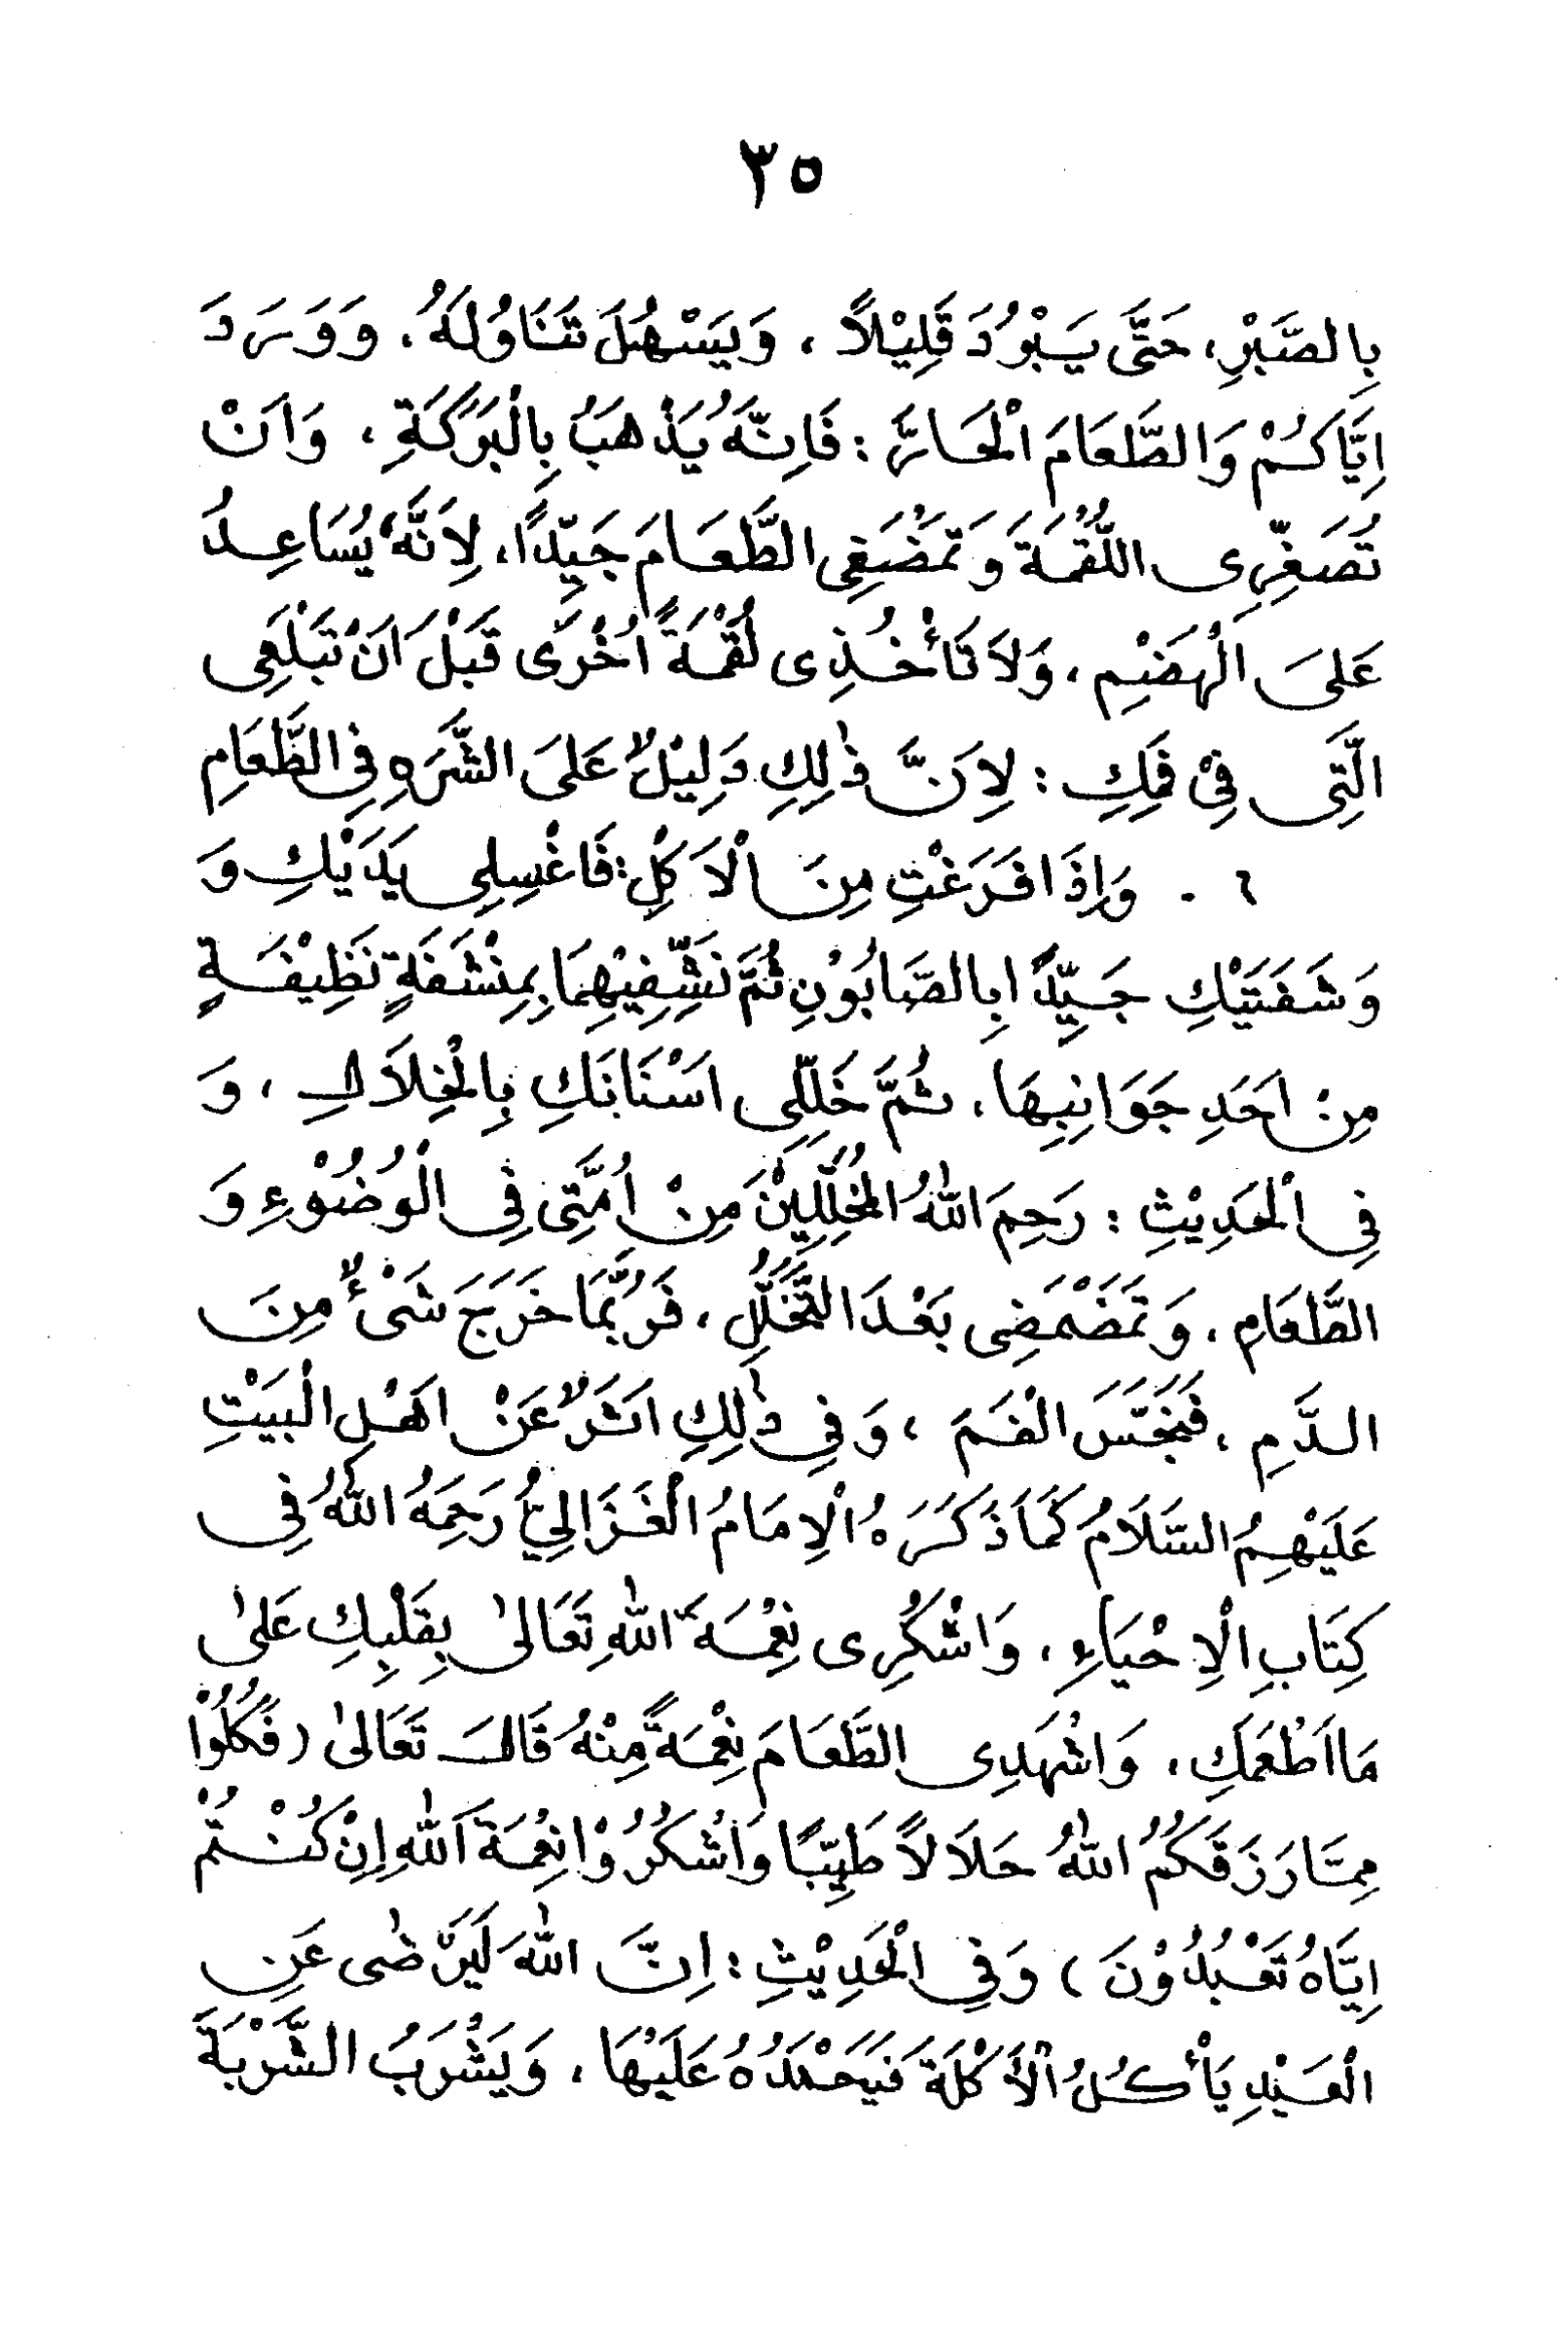 ٣٥
بِالصَّبْرِ، حَتَّى يَبْرُدَ قَلِيْلًا، وَيَسْهُلَ تَنَاوُلُهُ. وَوَرَدَ
اِيَّاكُمْ وَالطَّعَامَ الْحَارَّ: فَاِنَّهُ يَذْهَبُ بِالْبَرَكَةِ، وَاَنْ
تُصَغِّرِى اللُّقْمَةَ وَتَمْضَغِى الطَّعَامَ جَيِّدًا، لِاَنَّهُ يُسَاعِدُ
عَلَى الْهَضْمِ، وَلَا تَأْخُذِى لُقْمَةً اُخْرَى قَبْلَ اَنْ تَبْلَعِى
الَّتِى فِيْ فَمِكِ: لِاَنَّ ذٰلِكِ دَلِيْلٌ عَلَى الشَّرَهِ فِى الطَّعَامِ
٦. وَاِذَا فَرَغْتِ مِنَ الْاَكْلِ: فَاغْسِلِى يَدَيْكِ وَ
وَشَفَتَيْكِ جَيِّدًا بِالصَّابُوْنِ ثُمَّ نَشِّفِيْهِمَا بِمِنْشَفَةٍ نَظِيْفَةٍ
مِنْ اَحَدِ جَوَانِبِهَا. ثُمَّ خَلِّلِى اَسْنَانَكِ بِالْخِلَالِ، وَ
فِى الْحَدِيْثِ: رَحِمَ اللّٰهُ الْمُخَلِّلِيْنَ مِنْ اُمَّتِى فِى الْوُضُوْءِ وَ
الطَّعَامِ. وَتَمَضْمَضِى بَعْدَ التَّخَلُّلِ، فَرُبَّمَا خَرَجَ شَىْءٌ مِنَ
الدَّمِ، فَنَجَّسَ الْفَمَ، وَفِى ذٰلِكِ اَثَرٌ عَنْ اَهْلِ الْبَيْتِ
عَلَيْهِمُ السَّلَامُ كَمَا ذَكَرَهُ الْاِمَامُ الْغَزَالِيُّ رَحِمَهُ اللّٰهُ فِى
كِتَابِ الْاِحْيَاءِ، وَاشْكُرِى نِعْمَةَ اللّٰهِ تَعَالٰى بِقَلْبِكِ عَلٰى
مَا اَطْعَمَكِ، وَاشْهَدِى الطَّعَامَ نِعْمَةً مِنْهُ قَالَ تَعَالٰى (فَكُلُوْا
مِمَّا رَزَقَكُمُ اللّٰهُ حَلَالًا طَيِّبًا وَاشْكُرُوْا نِعْمَةَ اللّٰهِ اِنْ كُنْتُمْ
اِيَّاهُ تَعْبُدُوْنَ) وَفِى الْحَدِيْثِ: اِنَّ اللّٰهَ لَيَرْضٰى عَنِ
الْعَبْدِ يَأْكُلُ الْاَكْلَةَ فَيَحْمَدُهُ عَلَيْهَا، وَيَشْرَبُ الشَّرْبَةَ